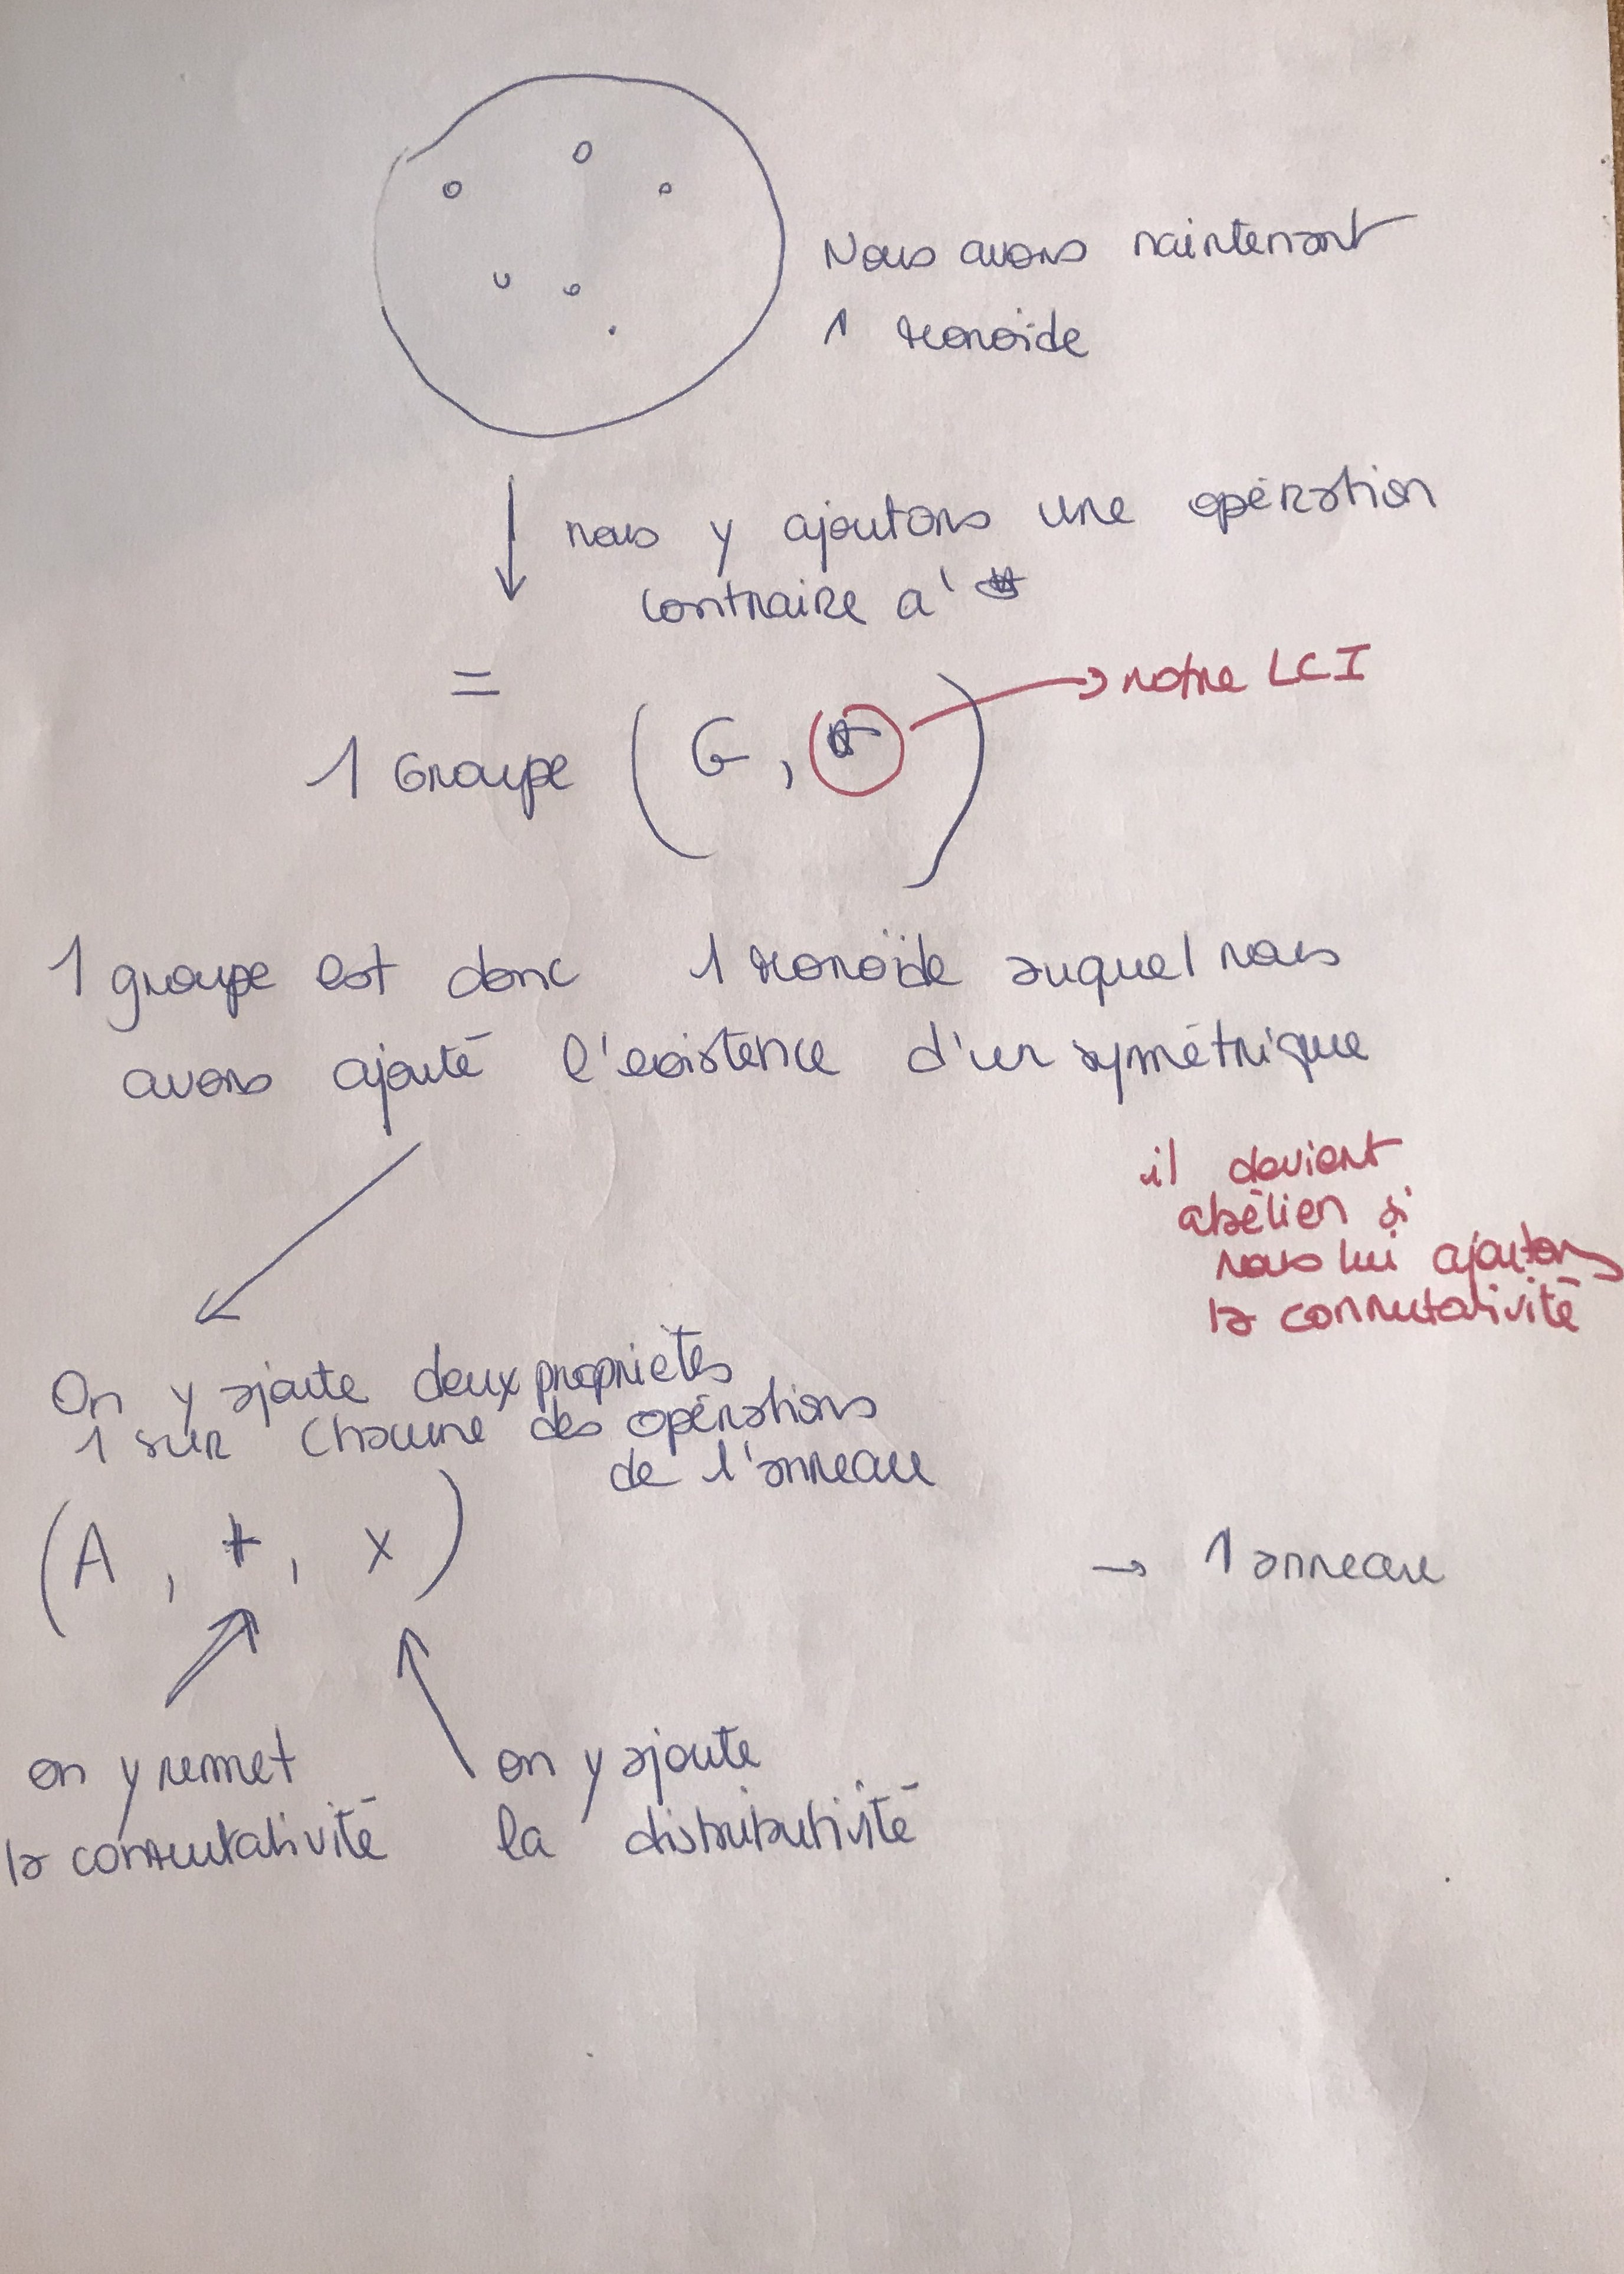 Nous avons maintenant
1 Monoïde
nous y ajoutons une opération
contraire a' *
=
1 Groupe (G, *)
→ notre LCI
1 groupe est donc 1 Monoïde auquel nous
avons ajouté l'existence d'un symétrique
il devient
abélien si
nous lui ajoutons
la commutativité
On y ajoute deux propriétés
1 sur chacune des opérations
de l'anneau
(A, +, x)
→ 1 anneau
on y remet
la commutativité
on y ajoute
la distributivité